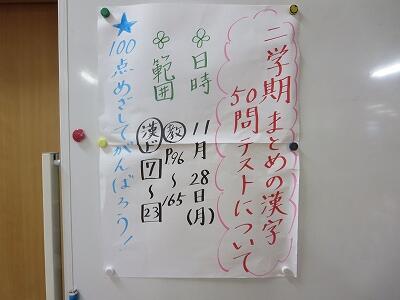 二学期まとめの漢字
50問テストについて
日時
11月28日(月)
範囲
教 P96〜165
漢ド 7〜23
★100点めざしてがんばろう!